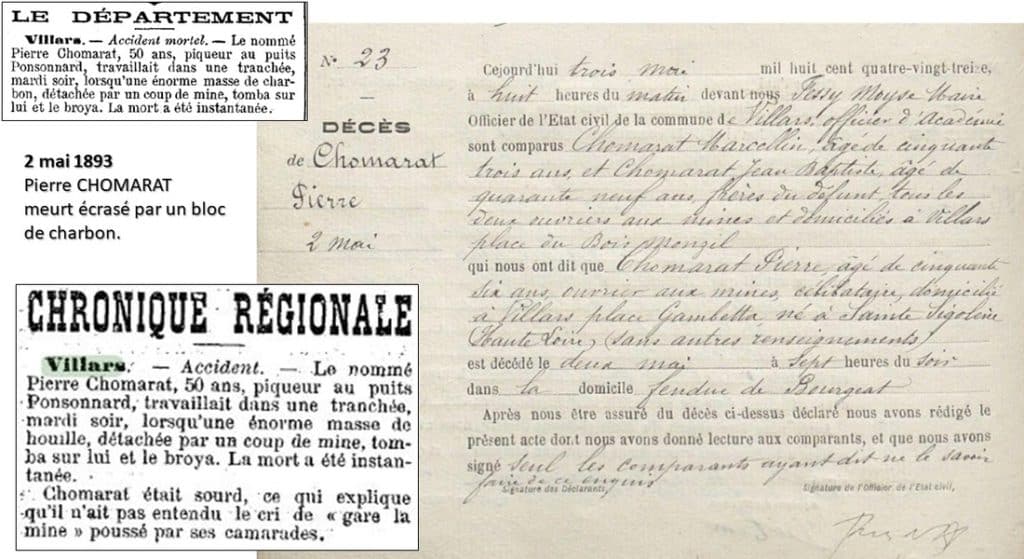 LE DÉPARTEMENT
Villars. — Accident mortel. — Le nommé
Pierre Chomarat, 50 ans, piqueur au puits
Ponsonnard, travaillait dans une tranchée,
mardi soir, lorsqu'une énorme masse de char-
bon, détachée par un coup de mine, tomba sur
lui et le broya. La mort a été instantanée.
2 mai 1893
Pierre CHOMARAT
meurt écrasé par un bloc
de charbon.
CHRONIQUE RÉGIONALE
Villars. — Accident. — Le nommé
Pierre Chomarat, 50 ans, piqueur au puits
Ponsonnard, travaillait dans une tranchée,
mardi soir, lorsqu'une énorme masse de
houille, détachée par un coup de mine, tom-
ba sur lui et le broya. La mort a été instan-
tanée.
Chomarat était sourd, ce qui explique
qu'il n'ait pas entendu le cri de « gare la
mine » poussé par ses camarades.
N° 23
DÉCÈS
de Chomarat
Pierre
2 mai
Cejourd'hui trois mai mil huit cent quatre-vingt-treize,
à huit heures du matin devant nous Tessy Moyse Maire
Officier de l'Etat civil de la commune de Villars, officier d'Académie
sont comparus Chomarat Marcellin, âgé de cinquante
trois ans, et Chomarat Jean Baptiste, âgé de
quarante neuf ans, frères du défunt, tous les
deux ouvriers aux mines et domiciliés à Villars
place du Bois Monzil
qui nous ont dit que Chomarat Pierre, âgé de cinquante
six ans, ouvrier aux mines, célibataire, domicilié
à Villars place Gambetta né à Sainte Sigolène
Haute Loire, (sans autres renseignements)
est décédé le deux mai à sept heures du soir
dans la domicile fendue de Bourgeat
Après nous être assuré du décès ci-dessus déclaré nous avons rédigé le
présent acte dont nous avons donné lecture aux comparants, et que nous avons
signé seul les comparants ayant dit ne le savoir
faire de ce enquis
Signature des Déclarants, Signature de l'Officier de l'Etat civil,